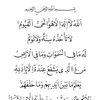 بسم الله الرحمن الرحيم
اللَّهُ لَا إِلَهَ إِلَّا هُوَ الْحَيُّ الْقَيُّومُ
لَا تَأْخُذُهُ سِنَةٌ وَلَا نَوْمٌ
لَهُ مَا فِي السَّمَاوَاتِ وَمَا فِي الْأَرْضِ
مَنْ ذَا الَّذِي يَشْفَعُ عِنْدَهُ إِلَّا بِإِذْنِهِ
يَعْلَمُ مَا بَيْنَ أَيْدِيهِمْ وَمَا خَلْفَهُمْ